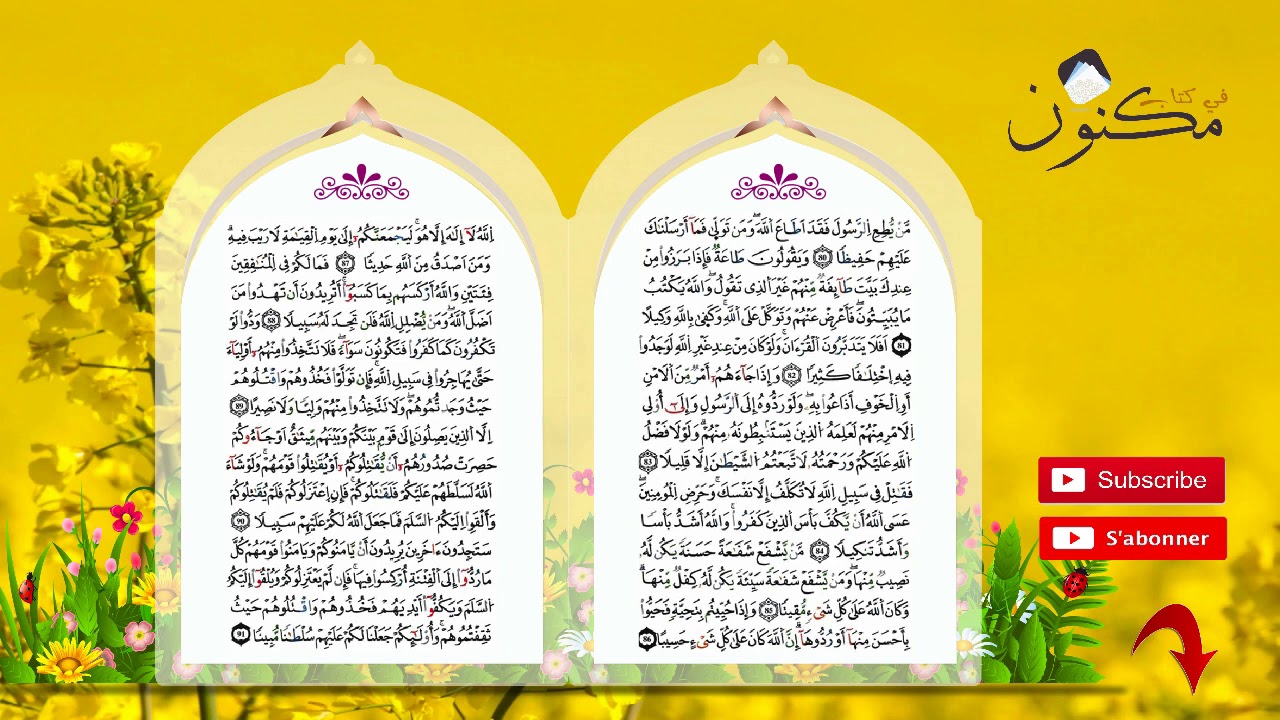 مَّنْ يُّطِعِ اِ۬لرَّسُولَ فَقَدَ اَطَاعَ اَ۬للَّهَۖ وَمَن تَوَلّ۪يٰ فَمَآ أَرْسَلْنَٰكَ
عَلَيْهِمْ حَفِيظاٗ 80 وَيَقُولُونَ طَاعَةٞۖ فَإِذَا بَرَزُواْ مِنْ
عِندِكَ بَيَّتَ طَآئِفَةٞ مِّنْهُمْ غَيْرَ اَ۬لذِے تَقُولُۖ وَاللَّهُ يَكْتُبُ
مَا يُبَيِّتُونَۖ فَأَعْرِضْ عَنْهُمْ وَتَوَكَّلْ عَلَي اَ۬للَّهِۖ وَكَف۪يٰ بِاللَّهِ وَكِيلاًۖ
81 اَفَلَا يَتَدَبَّرُونَ اَ۬لْقُرْءَانَۖ وَلَوْ كَانَ مِنْ عِندِ غَيْرِ اِ۬للَّهِ لَوَجَدُواْ
فِيهِ اِ۪خْتِلَٰفاٗ كَثِيراٗۖ 82 وَإِذَا جَآءَهُمُۥٓ أَمْرٞ مِّنَ اَ۬لَامْنِ
أَوِ اِ۬لْخَوْفِ أَذَاعُواْ بِهِۦۖ وَلَوْ رَدُّوهُ إِلَي اَ۬لرَّسُولِ وَإِلَيٰٓ أُوْلِے
اِ۬لَامْرِ مِنْهُمْ لَعَلِمَهُ اُ۬لذِينَ يَسْتَنۢبِطُونَهُۥ مِنْهُمْۖ وَلَوْلَا فَضْلُ
اُ۬للَّهِ عَلَيْكُمْ وَرَحْمَتُهُۥ لَاتَّبَعْتُمُ اُ۬لشَّيْطَٰنَ إِلَّا قَلِيلاٗۖ 83
فَقَٰتِلْ فِے سَبِيلِ اِ۬للَّهِ لَا تُكَلَّفُ إِلَّا نَفْسَكَۖ وَحَرِّضِ اِ۬لْمُومِنِينَۖ
عَسَي اَ۬للَّهُ أَنْ يَّكُفَّ بَأْسَ اَ۬لذِينَ كَفَرُواْۖ وَاللَّهُ أَشَدُّ بَأْساٗ
وَأَشَدُّ تَنكِيلاٗۖ 84 مَّنْ يَّشْفَعْ شَفَٰعَةً حَسَنَةٗ يَكُن لَّهُۥ
نَصِيبٞ مِّنْهَاۖ وَمَنْ يَّشْفَعْ شَفَٰعَةٗ سَيِّئَةٗ يَكُن لَّهُۥ كِفْلٞ مِّنْهَاۖ
وَكَانَ اَ۬للَّهُ عَلَيٰ كُلِّ شَےْءٖ مُّقِيتاٗۖ 85 وَإِذَا حُيِّيتُم بِتَحِيَّةٖ فَحَيُّواْ
بِأَحْسَنَ مِنْهَآ أَوْ رُدُّوهَآۖ إِنَّ اَ۬للَّهَ كَانَ عَلَيٰ كُلِّ شَےْءٍ حَسِيباًۖ 86
اِ۬للَّهُ لَآ إِلَٰهَ إِلَّا هُوَۖ لَيَجْمَعَنَّكُمُۥٓ إِلَيٰ يَوْمِ اِ۬لْقِيَٰمَةِ لَا رَيْبَ فِيهِۖ
وَمَنَ اَصْدَقُ مِنَ اَ۬للَّهِ حَدِيثاٗۖ 87 فَمَا لَكُمْ فِے اِ۬لْمُنَٰفِقِينَ
فِئَتَيْنِ وَاللَّهُ أَرْكَسَهُم بِمَا كَسَبُوٓاْۖ أَتُرِيدُونَ أَن تَهْدُواْ مَنَ
اَضَلَّ اَ۬للَّهُۖ وَمَنْ يُّضْلِلِ اِ۬للَّهُ فَلَن تَجِدَ لَهُۥ سَبِيلاٗۖ 88 وَدُّواْ لَوْ
تَكْفُرُونَ كَمَا كَفَرُواْ فَتَكُونُونَ سَوَآءٗۖ فَلَا تَتَّخِذُواْ مِنْهُمُۥٓ أَوْلِيَآءَ
حَتَّيٰ يُهَاجِرُواْ فِے سَبِيلِ اِ۬للَّهِۖ فَإِن تَوَلَّوْاْ فَخُذُوهُمْ وَاقْتُلُوهُمْ
حَيْثُ وَجَدتُّمُوهُمْۖ وَلَا تَتَّخِذُواْ مِنْهُمْ وَلِيّاٗ وَلَا نَصِيراً 89
اِلَّا اَ۬لذِينَ يَصِلُونَ إِلَيٰ قَوْمِۢ بَيْنَكُمْ وَبَيْنَهُم مِّيثَٰقٌ اَوْ جَآءُوكُمْ
حَصِرَتْ صُدُورُهُمُۥٓ أَنْ يُّقَٰتِلُوكُمُۥٓ أَوْ يُقَٰتِلُواْ قَوْمَهُمْۖ وَلَوْ شَآءَ
اَ۬للَّهُ لَسَلَّطَهُمْ عَلَيْكُمْ فَلَقَٰتَلُوكُمْۖ فَإِنِ اِ۪عْتَزَلُوكُمْ فَلَمْ يُقَٰتِلُوكُمْ
وَأَلْقَوِاْ اِلَيْكُمُ اُ۬لسَّلَمَ فَمَا جَعَلَ اَ۬للَّهُ لَكُمْ عَلَيْهِمْ سَبِيلاٗۖ 90
سَتَجِدُونَ ءَاخَرِينَ يُرِيدُونَ أَنْ يَّامَنُوكُمْ وَيَامَنُواْ قَوْمَهُمْ كُلَّ
مَا رُدُّوٓاْ إِلَي اَ۬لْفِتْنَةِ أُرْكِسُواْ فِيهَاۖ فَإِن لَّمْ يَعْتَزِلُوكُمْ وَيُلْقُوٓاْ إِلَيْكُمُ
اُ۬لسَّلَمَ وَيَكُفُّوٓاْ أَيْدِيَهُمْ فَخُذُوهُمْ وَاقْتُلُوهُمْ حَيْثُ
ثَقِفْتُمُوهُمْۖ وَأُوْلَٰٓئِكُمْ جَعَلْنَا لَكُمْ عَلَيْهِمْ سُلْطَٰناٗ مُّبِيناٗۖ 91
في كتاب
مكنون
Subscribe
S'abonner